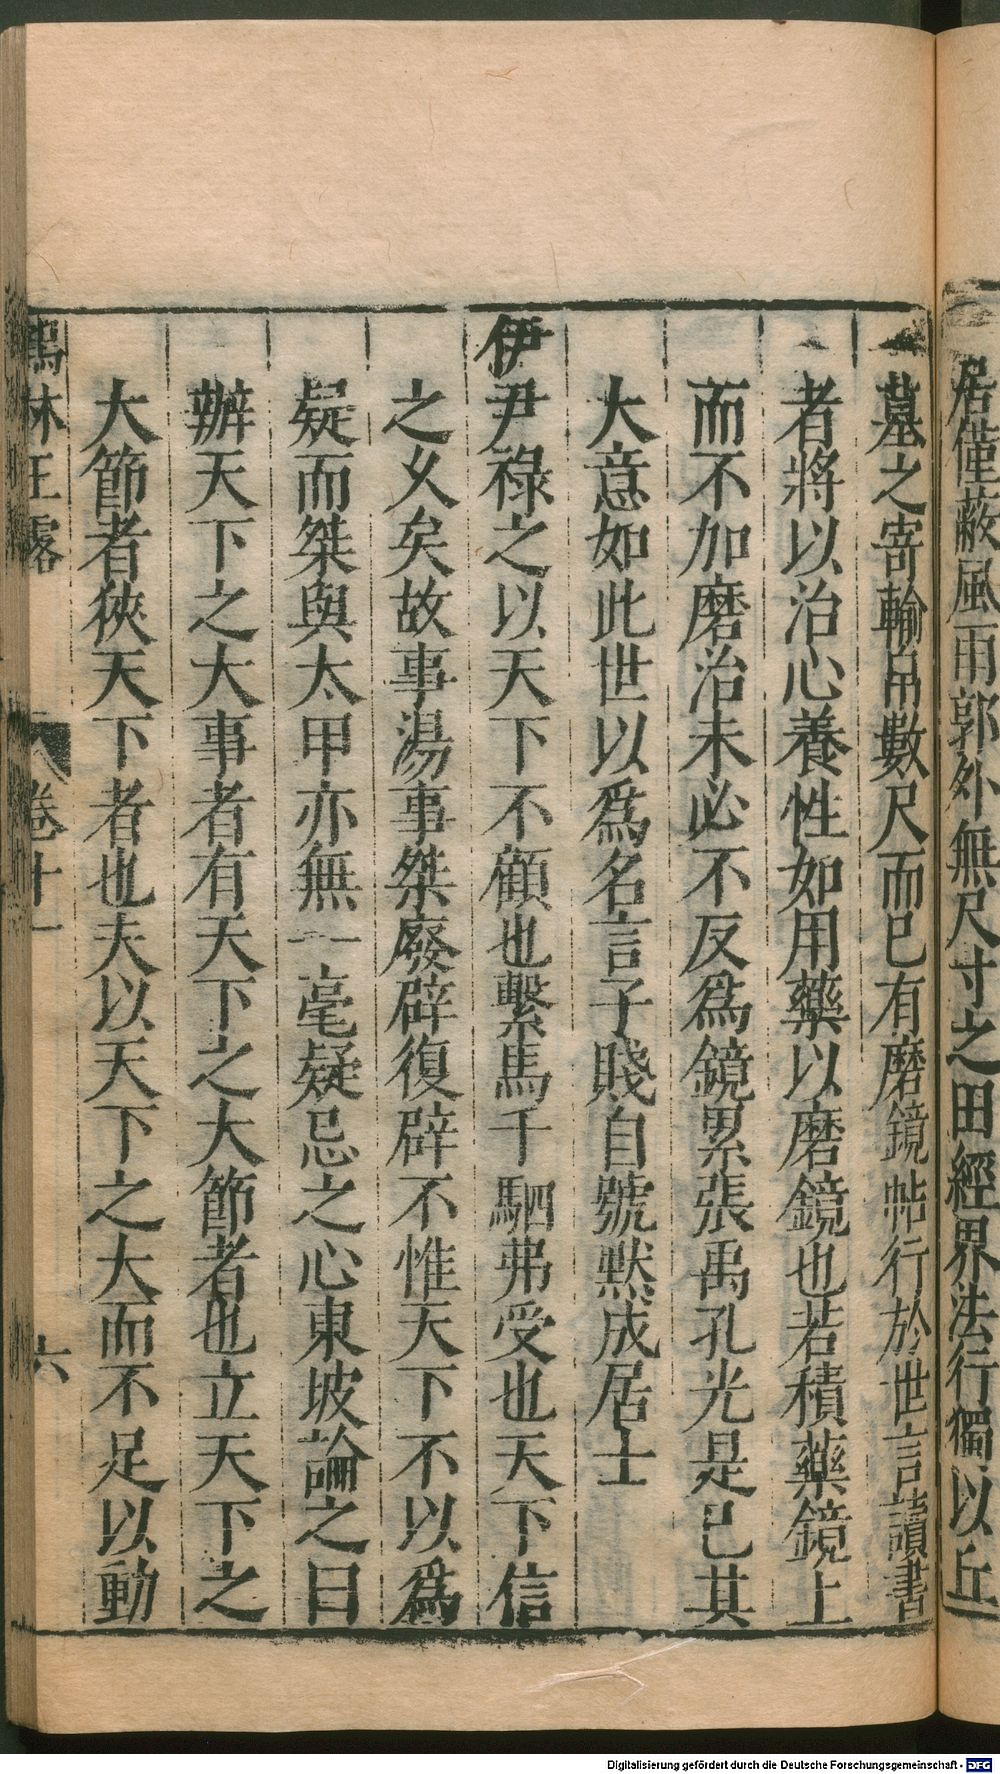 居僅蔽風雨郭外無尺寸之田經界法行獨以丘
墓之寄輸帛數尺而已有磨鏡帖行於世言讀書
者將以治心養性如用藥以磨鏡也若積藥鏡上
而不加磨治未必不反爲鏡累張禹孔光是已其
大意如此世以爲名言子賤自號默成居士
伊尹祿之以天下不顧也繫馬千駟弗受也天下信
之久矣故事湯事桀廢辟復辟不惟天下不以爲
疑而桀與太甲亦無一毫疑忌之心東坡論之曰
辦天下之大事者有天下之大節者也立天下之
大節者狹天下者也夫以天下之大而不足以動
鶴林玉露 卷十一 六
Digitalisierung gefördert durch die Deutsche Forschungsgemeinschaft - DFG